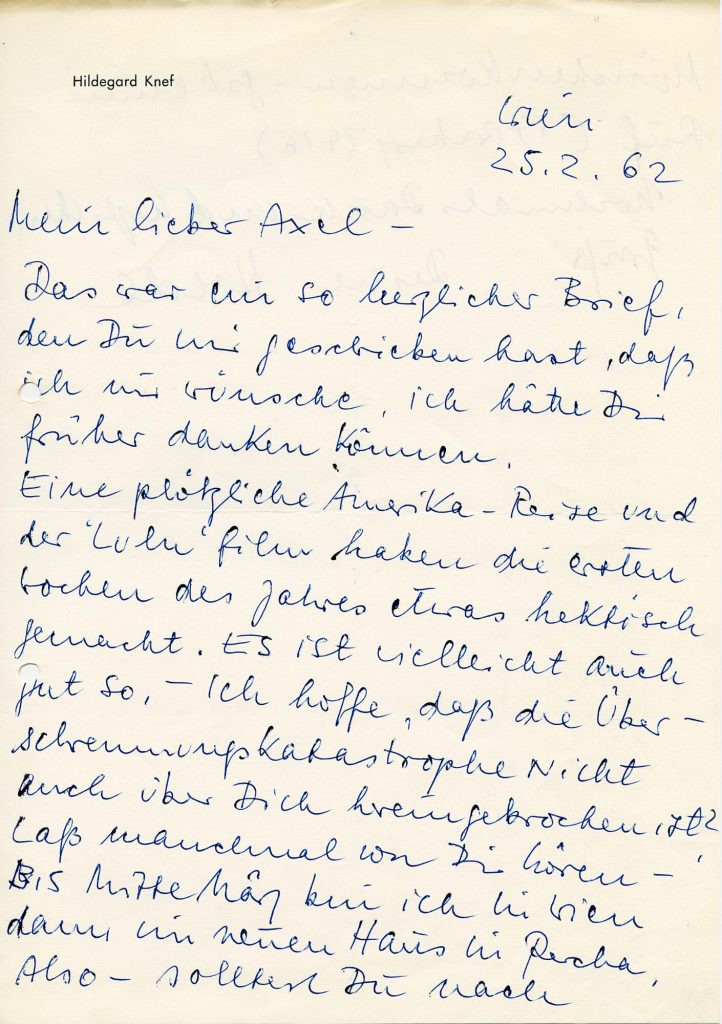 Hildegard Knef
Wien
25.2.62
Mein lieber Axel –
Das war ein so herzlicher Brief,
den Du mir geschrieben hast, daß
ich mir wünsche, ich hätte Dir
früher danken können.
Eine plötzliche Amerika-Reise und
der "Lulu" film haben die ersten
Wochen des Jahres etwas hektisch
gemacht. Es ist vielleicht auch
gut so, – Ich hoffe, daß die Über-
schwemmungskatastrophe Nicht
auch über Dich hereingebrochen ist?
Laß manchmal von Dir hören –
Bis Mitte März bin ich in Wien
dann im neuen Haus in Percha,
Also – solltest Du nach